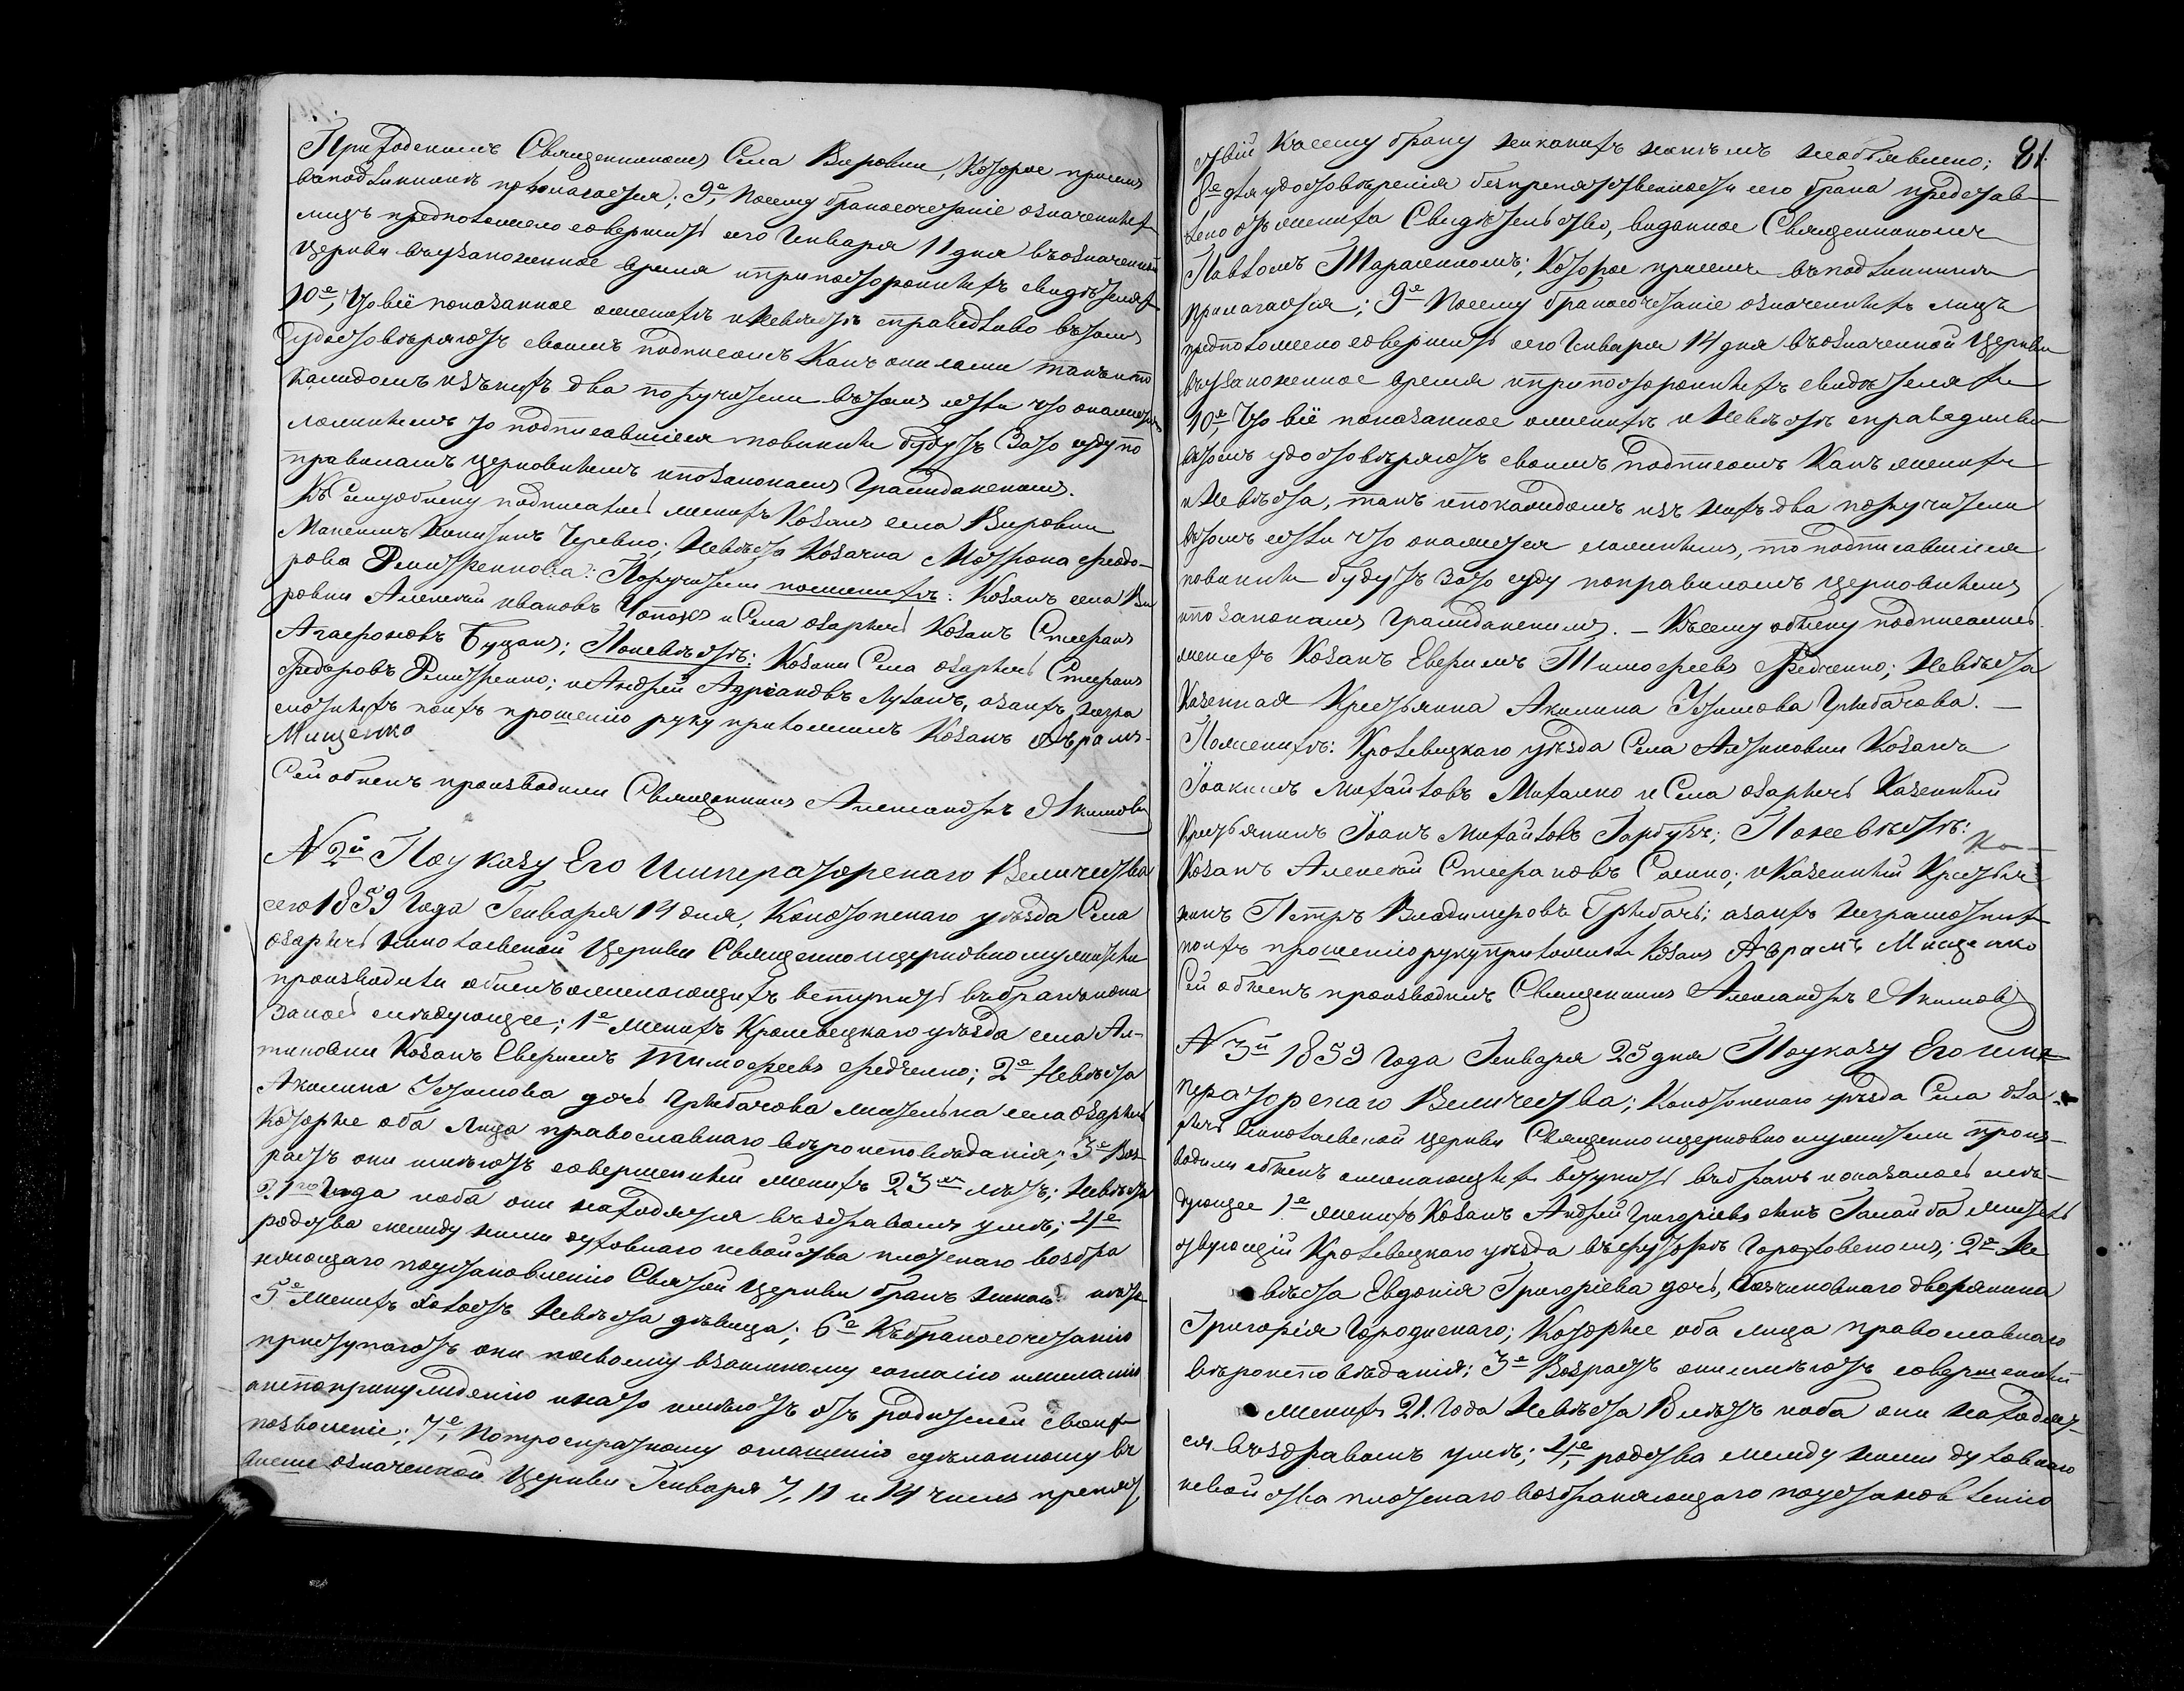 Приходскимъ Священникомъ Села Вировки, которое присемъ
въподлинникѣ прилагается; 9е, Посему бракосочетаніе означенныхъ
лицъ предположено совершить сего Генваря 11 дня въозначенной
Церкви въузаконенное время ипри постороннихъ свидѣтеляхъ
10е, Что всё показанное оженихѣ иНевѣстѣ справедливо вътомъ
удостовѣряютъ своимъ подписомъ Какъ они сами такъ ипо
каждомъ изънихъ два поручители вътомъ если что окажется
ложнымъ то подписавшіеся повинны будутъ Зато суду по
правиламъ церковнымъ ипозаконамъ Гражданскимъ.
Къ Сему обыску подписались женихъ Козакъ села Вировки
Максимъ Никитинъ Черевко; Невѣста Козачка Мотрона Ѳеодо-
рова Дмитренкова: Поручители поженихѣ: Козакъ села Ви
ровки Алексѣй Ивановъ и Села Озаричь Козакъ Стефанъ
Агафоновъ Буцанъ; Поневѣстѣ: Козаки Села Озаричь Стефанъ
Федоровъ Дмитренко; иАндрей Адріановъ Луханъ, азаихъ негра
мотныхъ поихъ прошенію руку приложилъ Козакъ Аврамъ
Мищенко
Сей обыскъ производили Священникъ Александръ Якимовъ
N 2й Поуказу Его Императорскаго Величества
сего 1859 Года Генваря 14 дня, Конотопскаго уѣзда Села
Озаричь Николаевской Церкви Священноицерковнослужители
производили обыскъожелающихъ вступить въбракъипока
залось слѣдующее; 1е Женихъ Кролевецкаго уѣзда села Ал-
тиновки Козакъ Евфимъ Тимофеевъ Федченко; 2е Невѣста
Акилина Ефимова дочь Грибачова жителька села Озаричь
которые оба Лица православнаго вѣроисповѣданія; 3е Воз-
растъ они имѣютъ совершенный Женихъ 23хъ лѣтъ; Невѣста
21го Года иоба они находятся въздравомъ умѣ; 4е
родства между ними духовнаго исвойства плотскаго возбра
няющаго поустановленію Святой Церкви бракъ никак.
5е Женихъ холостъ Невѣста дѣвица; 6е Къбракосочетанію
приступаютъ они посвоему взаимному согласію ижеланію
анепопринужденію инато имѣютъ отъ родителей своихъ
позволеніе; 7е, Потроекратному оглашенію сдѣланному въ
вышеозначенной Церкви Генваря 7, 11 и 14 числъ препят
81.
ствій Ксему браку никакихъ никѣмъ необъявлено;
8е дляудостовѣренія безпрепятственности сего брака представ-
лено отъ жениха Свидѣтельство, виданное Священникомъ
Павломъ Тарасенкомъ; Которое присемъ въподлинникѣ
прилагается; 9е Посему бракосочетаніе означенныхъ лицъ
предположено совершить сего Генваря 14 дня въозначенной Церкви
въузаконенное время иприпостороннихъ свидѣтеляхъ
10е, Что всё показанное оженихѣ и Невѣстѣ справедливо
вътомъ удостовѣряютъ своимъ подписомъ Какъ женихъ
и Невѣста, такъ ипокаждомъ изъ нихъ два поручители
вътомъ если что окажется ложнымъ, то подписавшіеся
повинны будутъ Зато суду поправиламъ церковнымъ
ипо законамъ Гражданскимъ. — Къ сему обыску подписались
женихъ Козакъ Евфимъ Тимофеевъ Федченко; Невѣста
Казенная Крестьянка Акилина Ефимова Грибачова. —
Поженихѣ: Кролевецкаго уѣзда Села Алтиновки Козакъ
Іоакимъ Михайловъ Михалко и Села Озаричь Казенный
Крестьянинъ Іоанъ Михайловъ Гарбузъ; Поневѣстѣ:
Козакъ Алексей Стефановъ Сашко; и Казенный Крестья
нинъ Петръ Владимеровъ Грибачь; азаихъ неграмотныхъ
поихъ прошеніюрукуприложилъ Козакъ Аврамъ Мищенко
Сей обыскъ производилъ Священникъ Александръ Якимовъ
N 3й 1859 Года Генваря 25 дня Поуказу Его Им-
ператорскаго Величества; Конотопскаго уѣзда Села Оза-
ричь Николаевской Церкви Священноицерковнослужители произ-
водили обыскъ ожелающихъ вступить въбракъ ипоказалось слѣ-
дующее 1е женихъ Козакъ Андрей Григоріевъ сынъ Галайба Житель
ствующій Кролевецкаго уѣзда въхуторѣ; 2е Не
вѣста Евдокія Григоріева дочь, безчиновнаго дворянина
Григорія Городискаго; Которые оба лица православнаго
вѣроисповѣданія; 3е Возрастъ онииѣютъ совершенный
Женихъ 21. Года Невѣста 18 лѣтъ иоба они находят
ся въздравомъ умѣ; 4е, родства между ними духовнаго
исвойства плотскаго возбраняющаго поустановленію